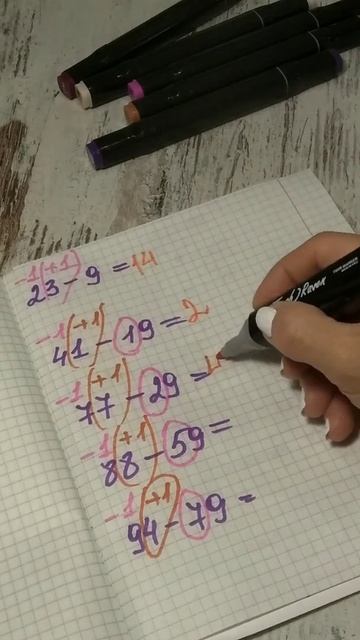 -1(+1)
23-9=14
-1(+1)
41-19=2
-1(+1)
77-29=4
-1(+1)
88-59=
-1 +1
94-79=
Raven